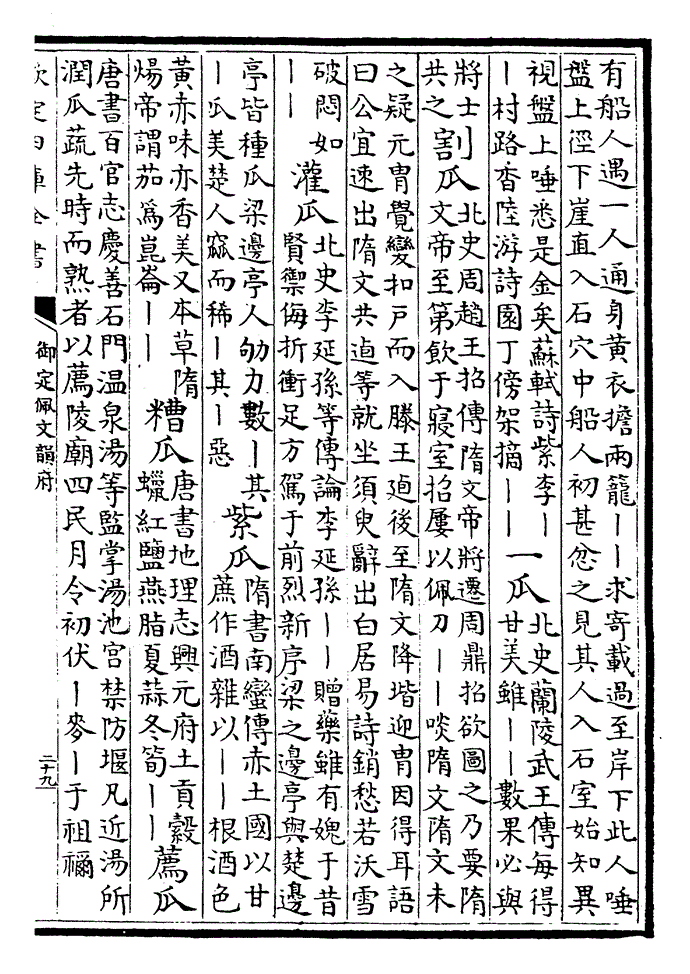 有船人遇一人通身黄衣擔兩籠——求寄載過至岸下此人唾
盤上徑下崖直入石穴中船人初甚忿之見其人入石室始知異
視盤上唾悉是金矣蘇軾詩紫李—
—村路香陸游詩園丁傍架摘——
一瓜
北史蘭陵武王傳每得
甘美雖——數果必與
將士
共之
割瓜
北史周趙王招傳隋文帝將遷周鼎招欲圖之乃要隋
文帝至第飲于寢室招屢以佩刀——啖隋文隋文未
之疑元胄覺變扣戸而入滕王逌後至隋文降堦迎胄因得耳語
曰公宜速出隋文共逌等就坐須臾辭出白居易詩銷愁若沃雪
破悶如
——
灌瓜
北史李延孫等傳論李延孫——贈藥雖有媿于昔
賢禦侮折衝足方駕于前烈新序梁之邊亭與楚邊
亭皆種瓜梁邊亭人劬力數—其
—瓜美楚人窳而稀—其—惡
紫瓜
隋書南蠻傳赤土國以甘
蔗作酒雜以——根酒色
黄赤味亦香美又本草隋
煬帝謂茄爲崑崙——
糟瓜
唐書地理志興元府土貢縠
蠟紅鹽燕脂夏蒜冬筍——
薦瓜
唐書百官志慶善石門温泉湯等監掌湯池宫禁防堰凡近湯所
潤瓜蔬先時而熟者以薦陵廟四民月令初伏—麥—于祖禰
欽定四庫全書
御定佩文韻府
二十九